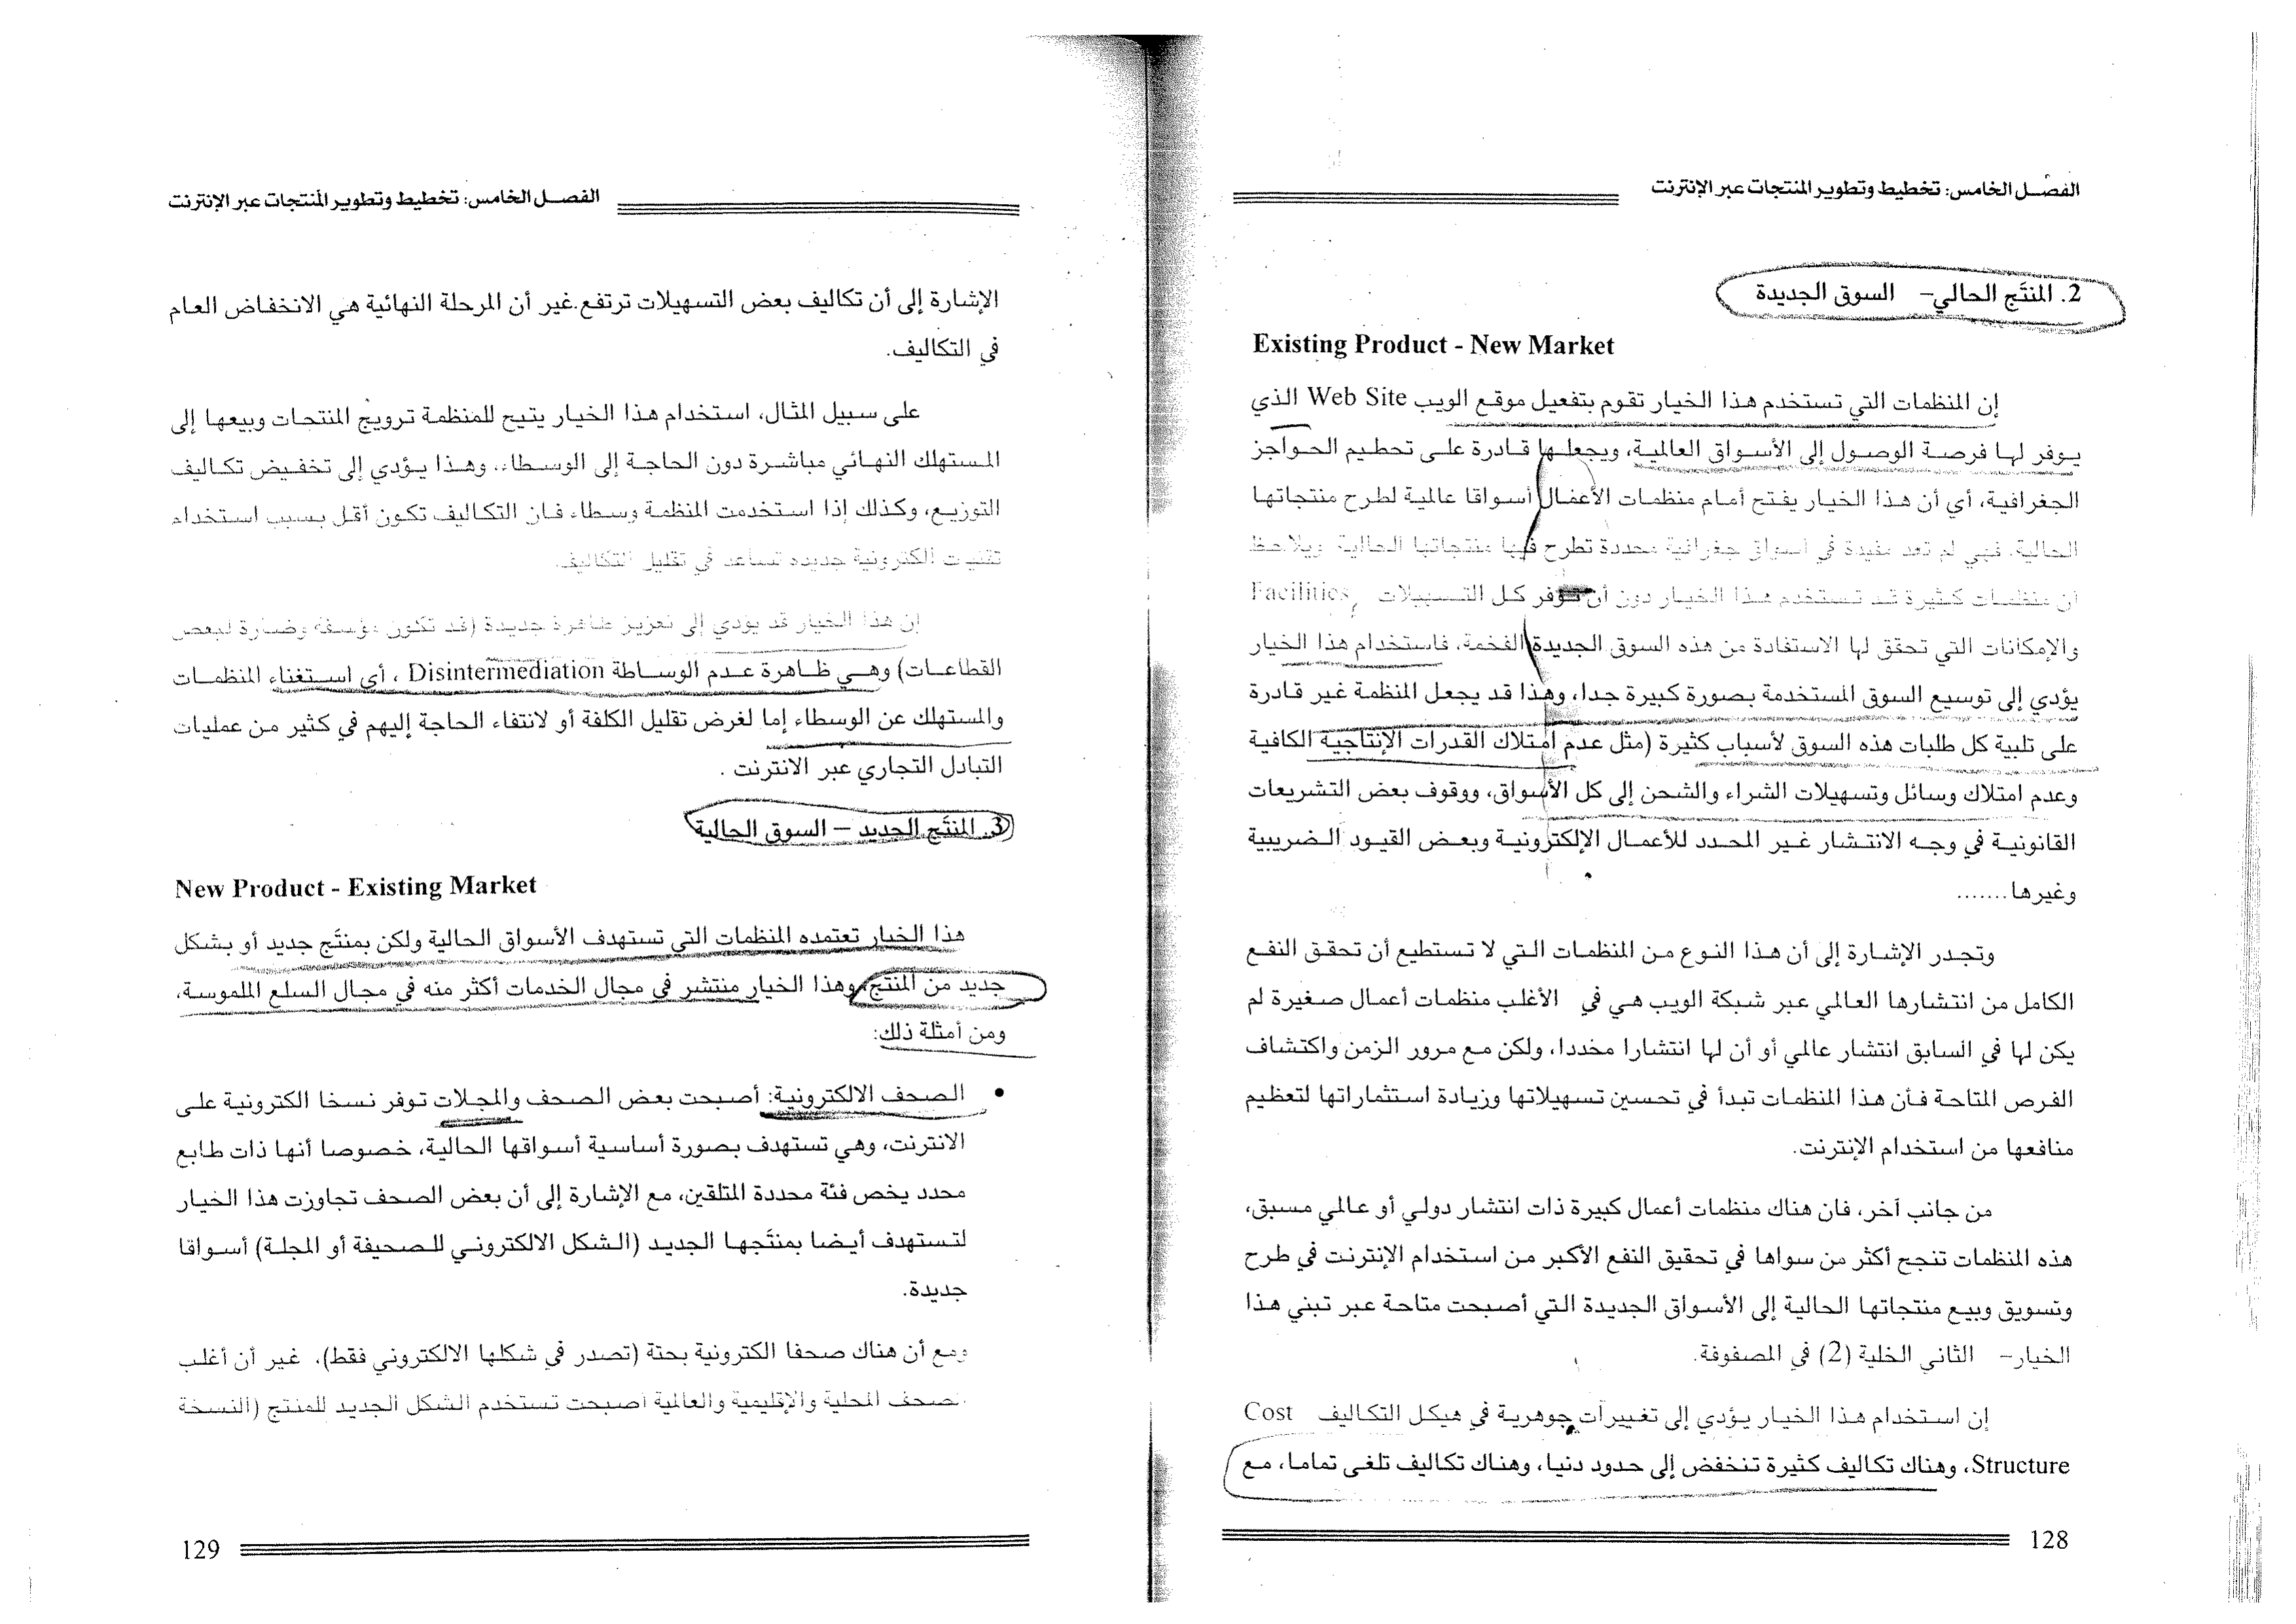 الفصل الخامس: تخطيط وتطوير المنتجات عبر الإنترنت
2. المنتَج الحالي- السوق الجديدة
Existing Product - New Market
إن المنظمات التي تستخدم هذا الخيار تقوم بتفعيل موقع الويب Web Site الذي
يوفر لها فرصة الوصول إلى الأسواق العالمية، ويجعلها قادرة على تحطيم الحواجز
الجغرافية، أي أن هذا الخيار يفتح أمام منظمات الأعمال أسواقا عالمية لطرح منتجاتها
الحالية. فهي لم تعد مقيدة في أسواق جغرافية محددة تطرح فيها منتجاتها الحالية. ويلاحظ
أن منظمات كثيرة قد تستخدم هذا الخيار دون أن توفر كل التسهيلات Facilities
والإمكانات التي تحقق لها الاستفادة من هذه السوق الجديدة الفخمة، فاستخدام هذا الخيار
يؤدي إلى توسيع السوق المستخدمة بصورة كبيرة جدا، وهذا قد يجعل المنظمة غير قادرة
على تلبية كل طلبات هذه السوق لأسباب كثيرة (مثل عدم امتلاك القدرات الإنتاجية الكافية
وعدم امتلاك وسائل وتسهيلات الشراء والشحن إلى كل الأسواق، ووقوف بعض التشريعات
القانونية في وجه الانتشار غير المحدد للأعمال الإلكترونية وبعض القيود الضريبية
وغيرها.......
وتجدر الإشارة إلى أن هذا النوع من المنظمات التي لا تستطيع أن تحقق النفع
الكامل من انتشارها العالمي عبر شبكة الويب هي في الأغلب منظمات أعمال صغيرة لم
يكن لها في السابق انتشار عالمي أو أن لها انتشارا محددا، ولكن مع مرور الزمن واكتشاف
الفرص المتاحة فأن هذا المنظمات تبدأ في تحسين تسهيلاتها وزيادة استثماراتها لتعظيم
منافعها من استخدام الإنترنت.
من جانب آخر، فان هناك منظمات أعمال كبيرة ذات انتشار دولي أو عالمي مسبق،
هذه المنظمات تنجح أكثر من سواها في تحقيق النفع الأكبر من استخدام الإنترنت في طرح
وتسويق وبيع منتجاتها الحالية إلى الأسواق الجديدة التي أصبحت متاحة عبر تبني هذا
الخيار- الثاني الخلية (2) في المصفوفة.
إن استخدام هذا الخيار يؤدي إلى تغييرات جوهرية في هيكل التكاليف Cost
Structure، وهناك تكاليف كثيرة تنخفض إلى حدود دنيا، وهناك تكاليف تلغى تماما، مع
128
الفصل الخامس: تخطيط وتطوير المنتجات عبر الإنترنت
الإشارة إلى أن تكاليف بعض التسهيلات ترتفع.غير أن المرحلة النهائية هي الانخفاض العام
في التكاليف.
على سبيل المثال، استخدام هذا الخيار يتيح للمنظمة ترويج المنتجات وبيعها إلى
المستهلك النهائي مباشرة دون الحاجة إلى الوسطاء. وهذا يؤدي إلى تخفيض تكاليف
التوزيع، وكذلك إذا استخدمت المنظمة وسطاء فان التكاليف تكون أقل بسبب استخدام
تقنيات الكترونية جديدة تساعد في تقليل التكاليف.
إن هذا الخيار قد يؤدي إلى تعزيز ظاهرة جديدة (قد تكون مؤسفة وضارة لبعض
القطاعات) وهي ظاهرة عدم الوساطة Disintermediation ، أي استغناء المنظمات
والمستهلك عن الوسطاء إما لغرض تقليل الكلفة أو لانتفاء الحاجة إليهم في كثير من عمليات
التبادل التجاري عبر الانترنت .
3. المنتَج الجديد – السوق الحالية
New Product - Existing Market
هذا الخيار تعتمده المنظمات التي تستهدف الأسواق الحالية ولكن بمنتَج جديد أو بشكل
جديد من المنتج، وهذا الخيار منتشر في مجال الخدمات أكثر منه في مجال السلع الملموسة،
ومن أمثلة ذلك:
• الصحف الالكترونية: أصبحت بعض الصحف والمجلات توفر نسخا الكترونية على
الانترنت، وهي تستهدف بصورة أساسية أسواقها الحالية، خصوصا أنها ذات طابع
محدد يخص فئة محددة المتلقين، مع الإشارة إلى أن بعض الصحف تجاوزت هذا الخيار
لتستهدف أيضا بمنتَجها الجديد (الشكل الالكتروني للصحيفة أو المجلة) أسواقا
جديدة.
ومع أن هناك صحفا الكترونية بحتة (تصدر في شكلها الالكتروني فقط)، غير أن أغلب
الصحف المحلية والإقليمية والعالمية أصبحت تستخدم الشكل الجديد للمنتج (النسخة
129